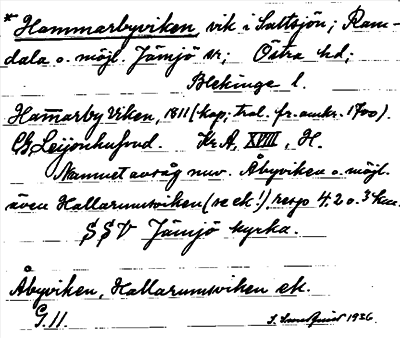 * Hammarbyviken, vik i Saltsjön; Ram-
dala o. möjl. Jämjö sn; Östra hd;
Blekinge l.
Ham̅arby Viken, 1811 (kop; trol. fr. omkr. 1700).
CG Leijonhufvud. Kr. A, XVIII, H.
Namnet avsåg nuv. Åbyviken o. möjl.
även Hallarumsviken (se ek!) resp 4.2 o. 3 km.
SSV Jämjö kyrka.
Åbyviken, Hallarumsviken ek.
G. 11. 1936.